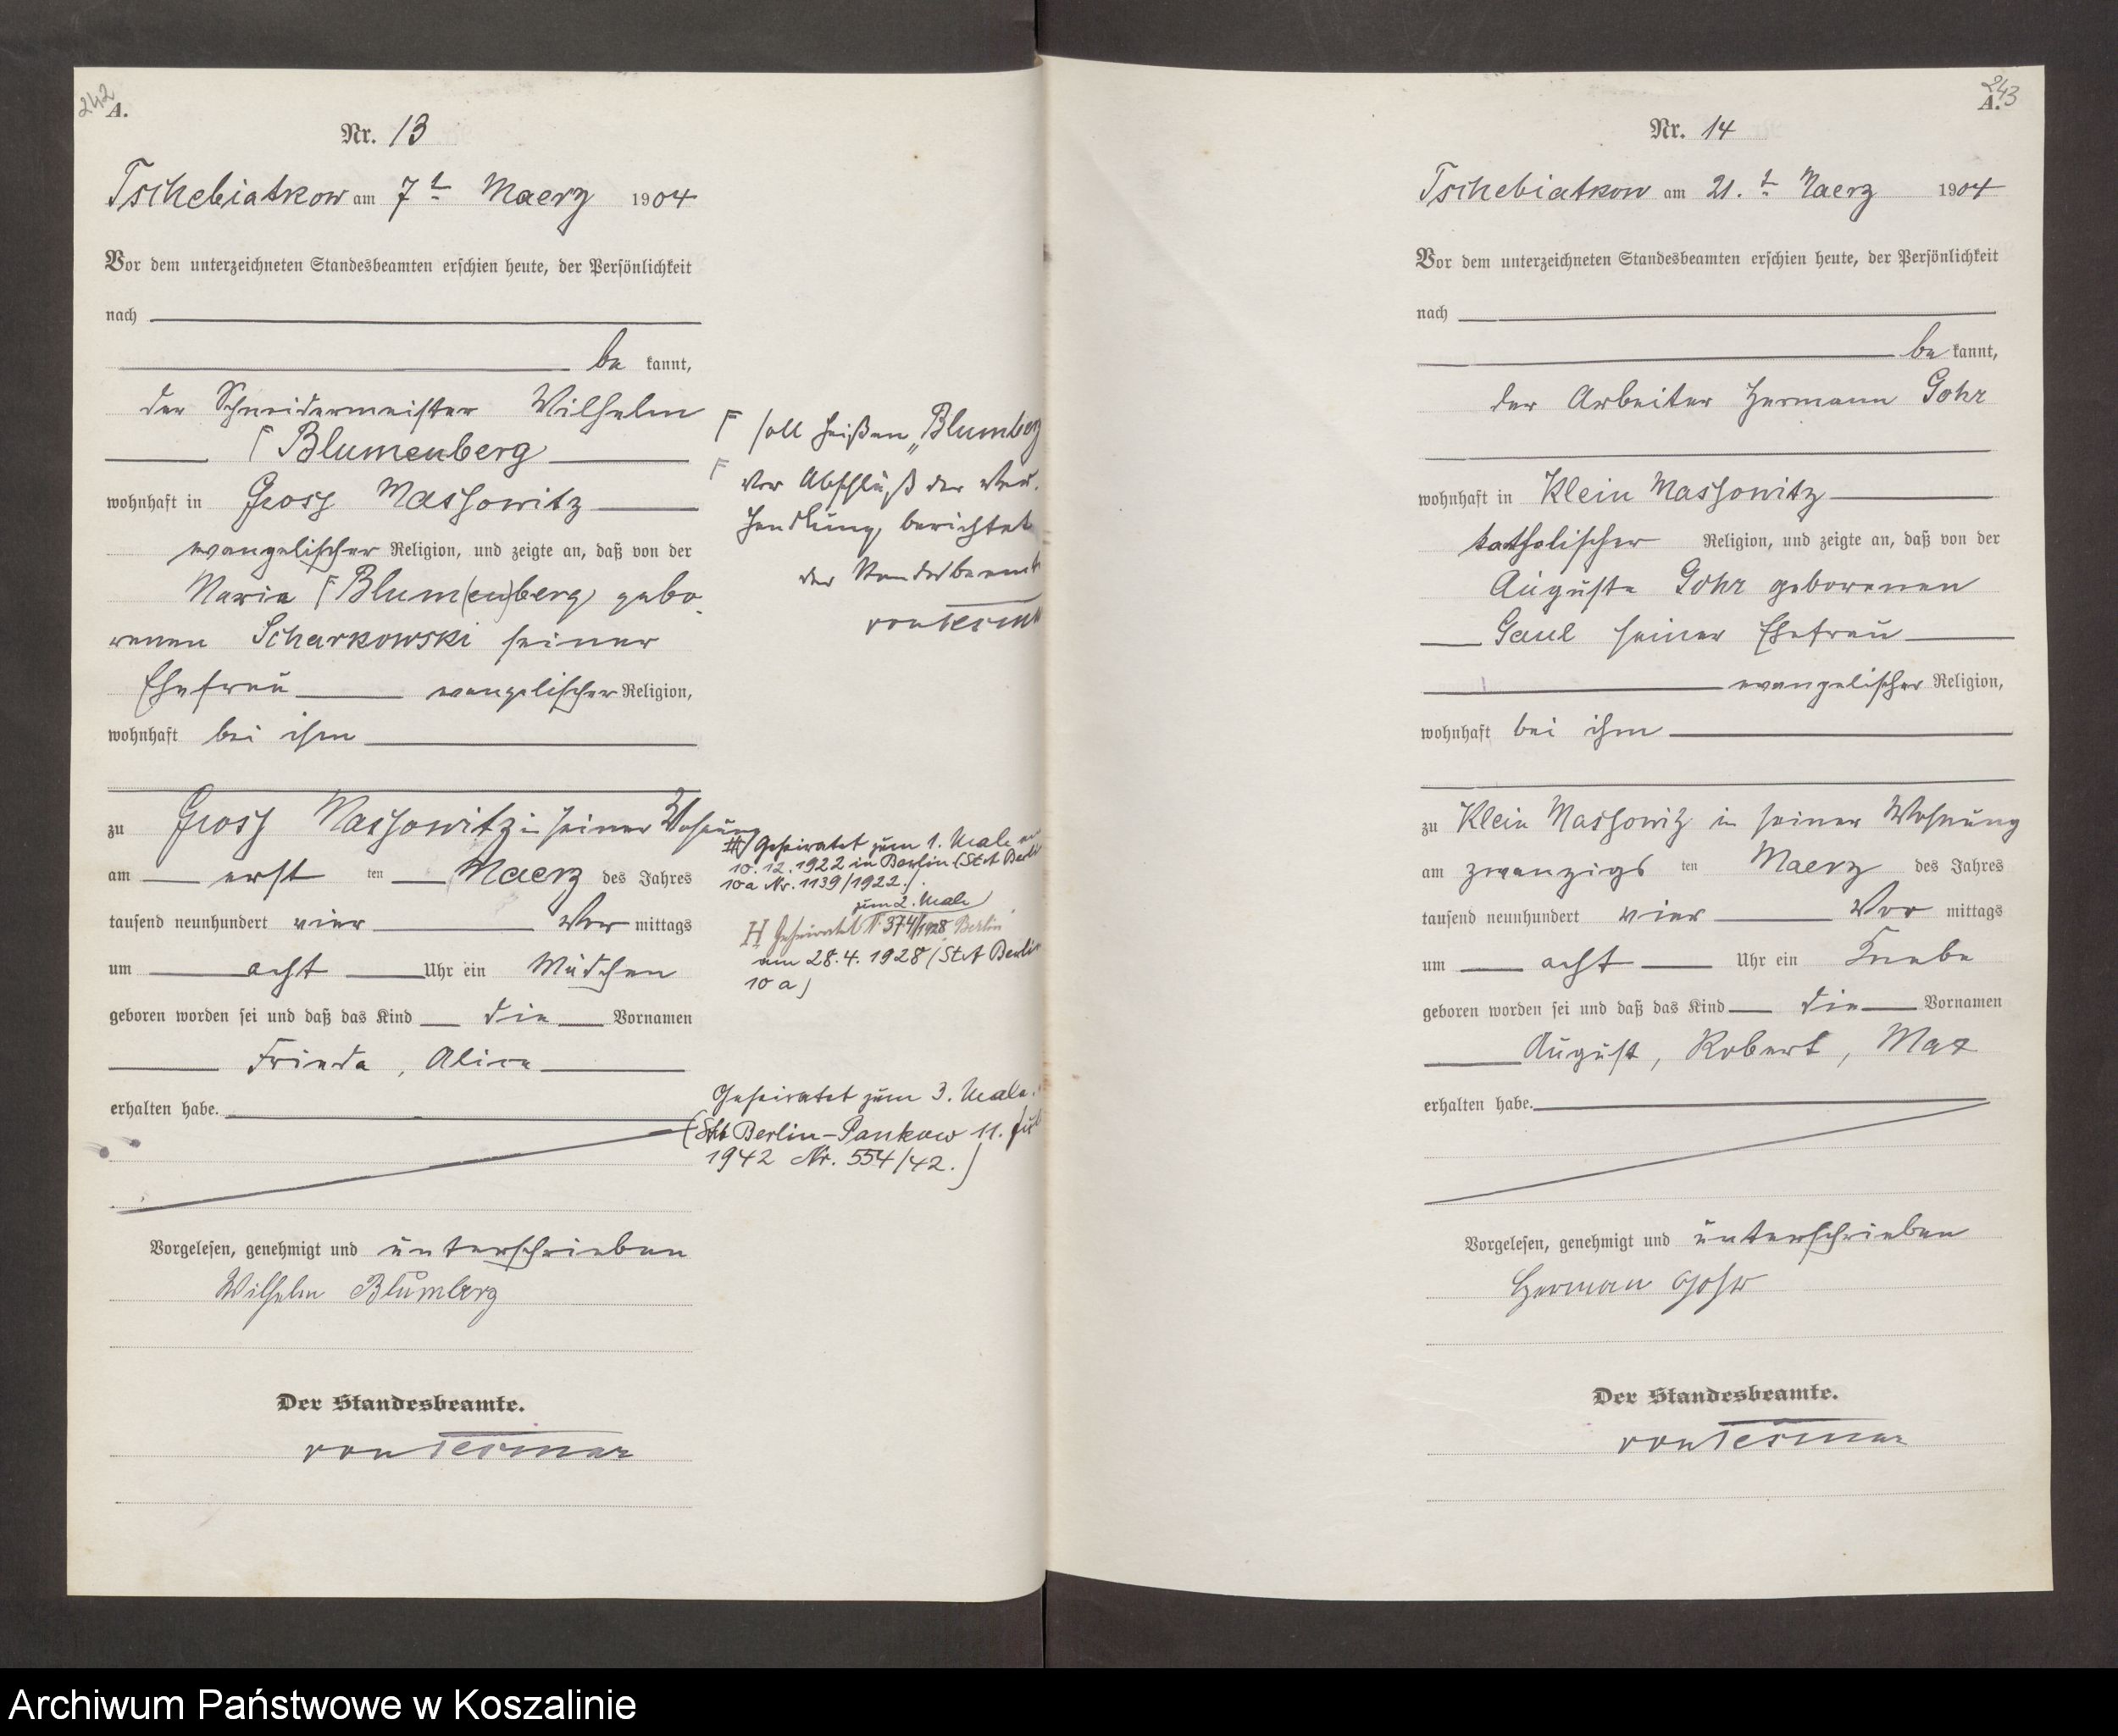 242
A.
Nr. 13
Tschebiatkow am 7t Maerz 1904
Vor dem unterzeichneten Standesbeamten erschien heute, der Persönlichkeit
nach
be kannt,
der Schneidermeister Wilhelm
Blumenberg
wohnhaft in Gross Massowitz
evangelischer Religion, und zeigte an, daß von der
Maria Blum(en)berg gebo-
renen Scharkowski seiner
Ehefrau evangelischer Religion,
wohnhaft bei ihm
zu Gross Massowitz in seiner Wohnung
am erst ten Maerz des Jahres
tausend neunhundert vier Vor mittags
um acht Uhr ein Mädchen
geboren worden sei und daß das Kind die Vornamen
Frieda, Alice
erhalten habe.
Vorgelesen, genehmigt und unterschrieben
Wilhelm Blumberg
Der Standesbeamte.
von Tesmar
soll heißen „Blumberg
Vor Abschluß der Ver-
handlung, berichtet
der Standesbeamte
von Tesmar
Geheiratet zum 1. Male am
10.12.1922 in Berlin (St.A Berlin
10a Nr. 1139/1922.)
zum 2. Male
H Geheiratet N: 374/1928 Berlin
am 28.4.1928 (St.A Berlin
10a)
Geheiratet zum 3. Male.
(StA Berlin-Pankow 11. Juli
1942 Nr. 554/42.)
243
A.
Nr. 14
Tschebiatkow am 21.t Maerz 1904
Vor dem unterzeichneten Standesbeamten erschien heute, der Persönlichkeit
nach
be kannt,
der Arbeiter Hermann Gohr
wohnhaft in Klein Massowitz
katholischer Religion, und zeigte an, daß von der
Auguste Gohr geborenen
Gaul seiner Ehefrau
evangelischer Religion,
wohnhaft bei ihm
zu Klein Massowitz in seiner Wohnung
am zwanzigs ten Maerz des Jahres
tausend neunhundert vier Vor mittags
um acht Uhr ein Knabe
geboren worden sei und daß das Kind die Vornamen
August, Robert, Max
erhalten habe.
Vorgelesen, genehmigt und unterschrieben
Herman Gohr
Der Standesbeamte.
von Tesmar
Archiwum Państwowe w Koszalinie